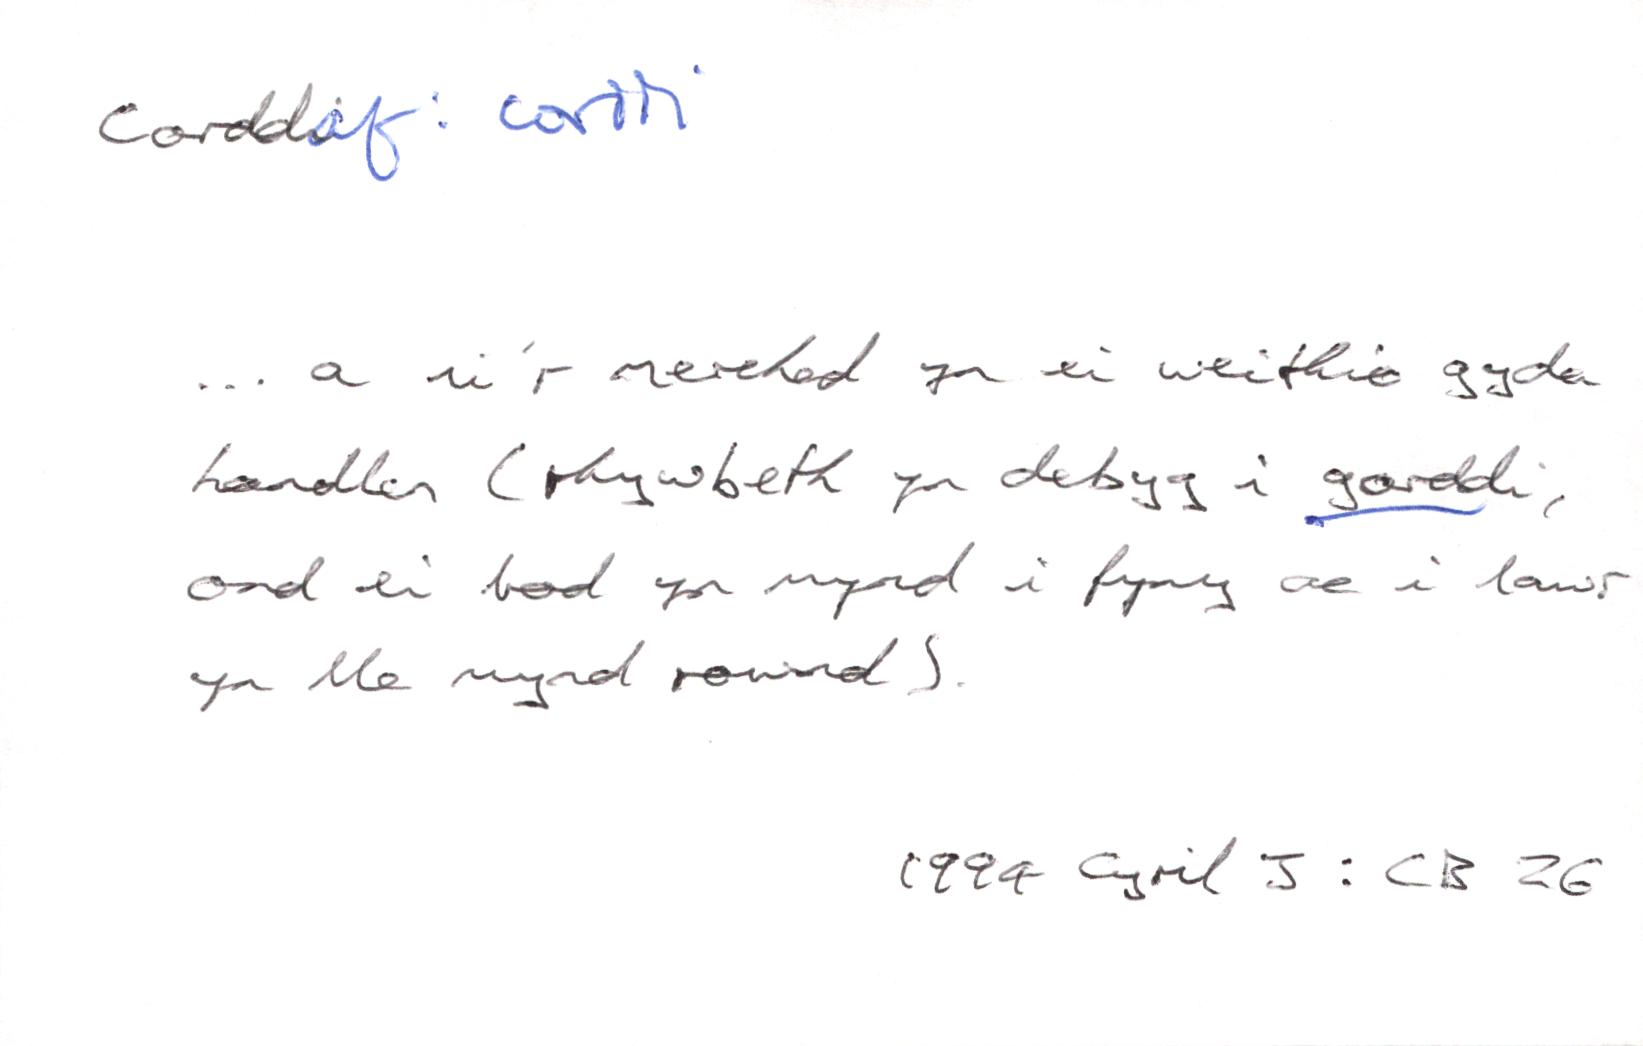 Corddaf: corddi
... a ni'r merched yn ei weithio gyda
handlen (rhywbeth yn debyg i gorddi,
ond ei bod yn mynd i fyny ac i lawr
yn lle mynd rownd).
1994 Cyril J: CB 26